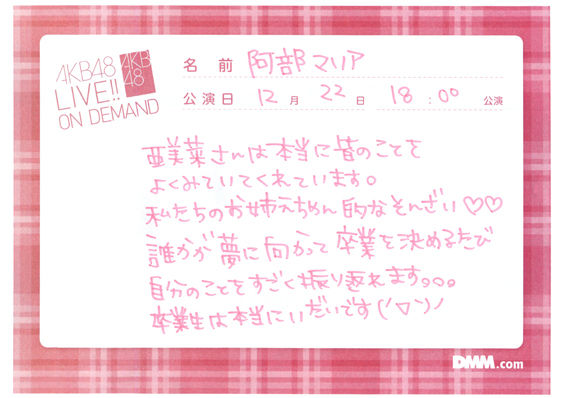 AKB48
LIVE!!
ON DEMAND
AKB
48
名 前 阿部マリア
公演日 12 月 22 日 18 : 00 公演
亜美菜さんは本当に皆のことを
よくみていてくれています。
私たちのお姉えちゃん的なそんざい♡♡
誰かが夢に向かって卒業を決めるたび
自分のことをすごく振り返れます。。。
卒業生は本当にいだいです(´▽`)ノ
DMM.com